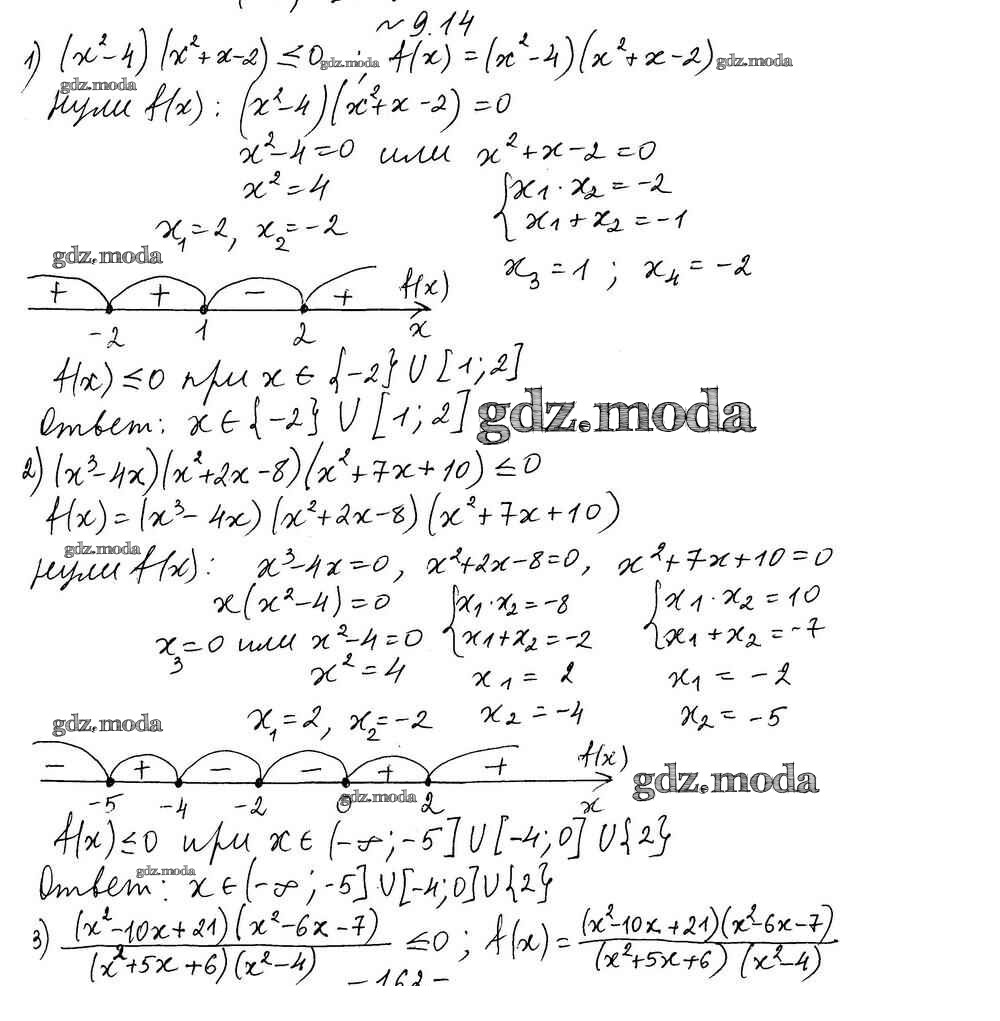 № 9.14
1) (x²-4)(x²+x-2) ≤ 0 ; f(x) = (x²-4)(x²+x-2)
gdz.moda gdz.moda
gdz.moda
Нули f(x): (x²-4)(x²+x-2) = 0
x²-4=0 или x²+x-2=0
x²=4 {x1·x2=-2
x1+x2=-1
x₁=2, x₂=-2
gdz.moda
x₃=1; x₄=-2
+ + - + f(x)
-2 1 2 x
f(x) ≤ 0 при x ∈ {-2} U [1;2]
Ответ: x ∈ {-2} U [1; 2] gdz.moda
2) (x³-4x)(x²+2x-8)(x²+7x+10) ≤ 0
f(x) = (x³-4x)(x²+2x-8)(x²+7x+10)
gdz.moda
Нули f(x): x³-4x=0, x²+2x-8=0, x²+7x+10=0
x(x²-4)=0 {x1·x2=-8 {x1·x2=10
x₃=0 или x²-4=0 x1+x2=-2 x1+x2=-7
x²=4 x1= 2 x1= -2
gdz.moda x₁=2, x₂=-2 x2=-4 x2=-5
- + - - + + f(x) gdz.moda
-5 -4 -2 0 2 x
gdz.moda
f(x) ≤ 0 при x ∈ (-∞;-5] U [-4;0] U {2}
gdz.moda
Ответ: x ∈ (-∞;-5] U [-4;0] U {2}
3) (x²-10x+21)(x²-6x-7) / (x²+5x+6)(x²-4) ≤ 0; f(x) = (x²-10x+21)(x²-6x-7) / (x²+5x+6)(x²-4)